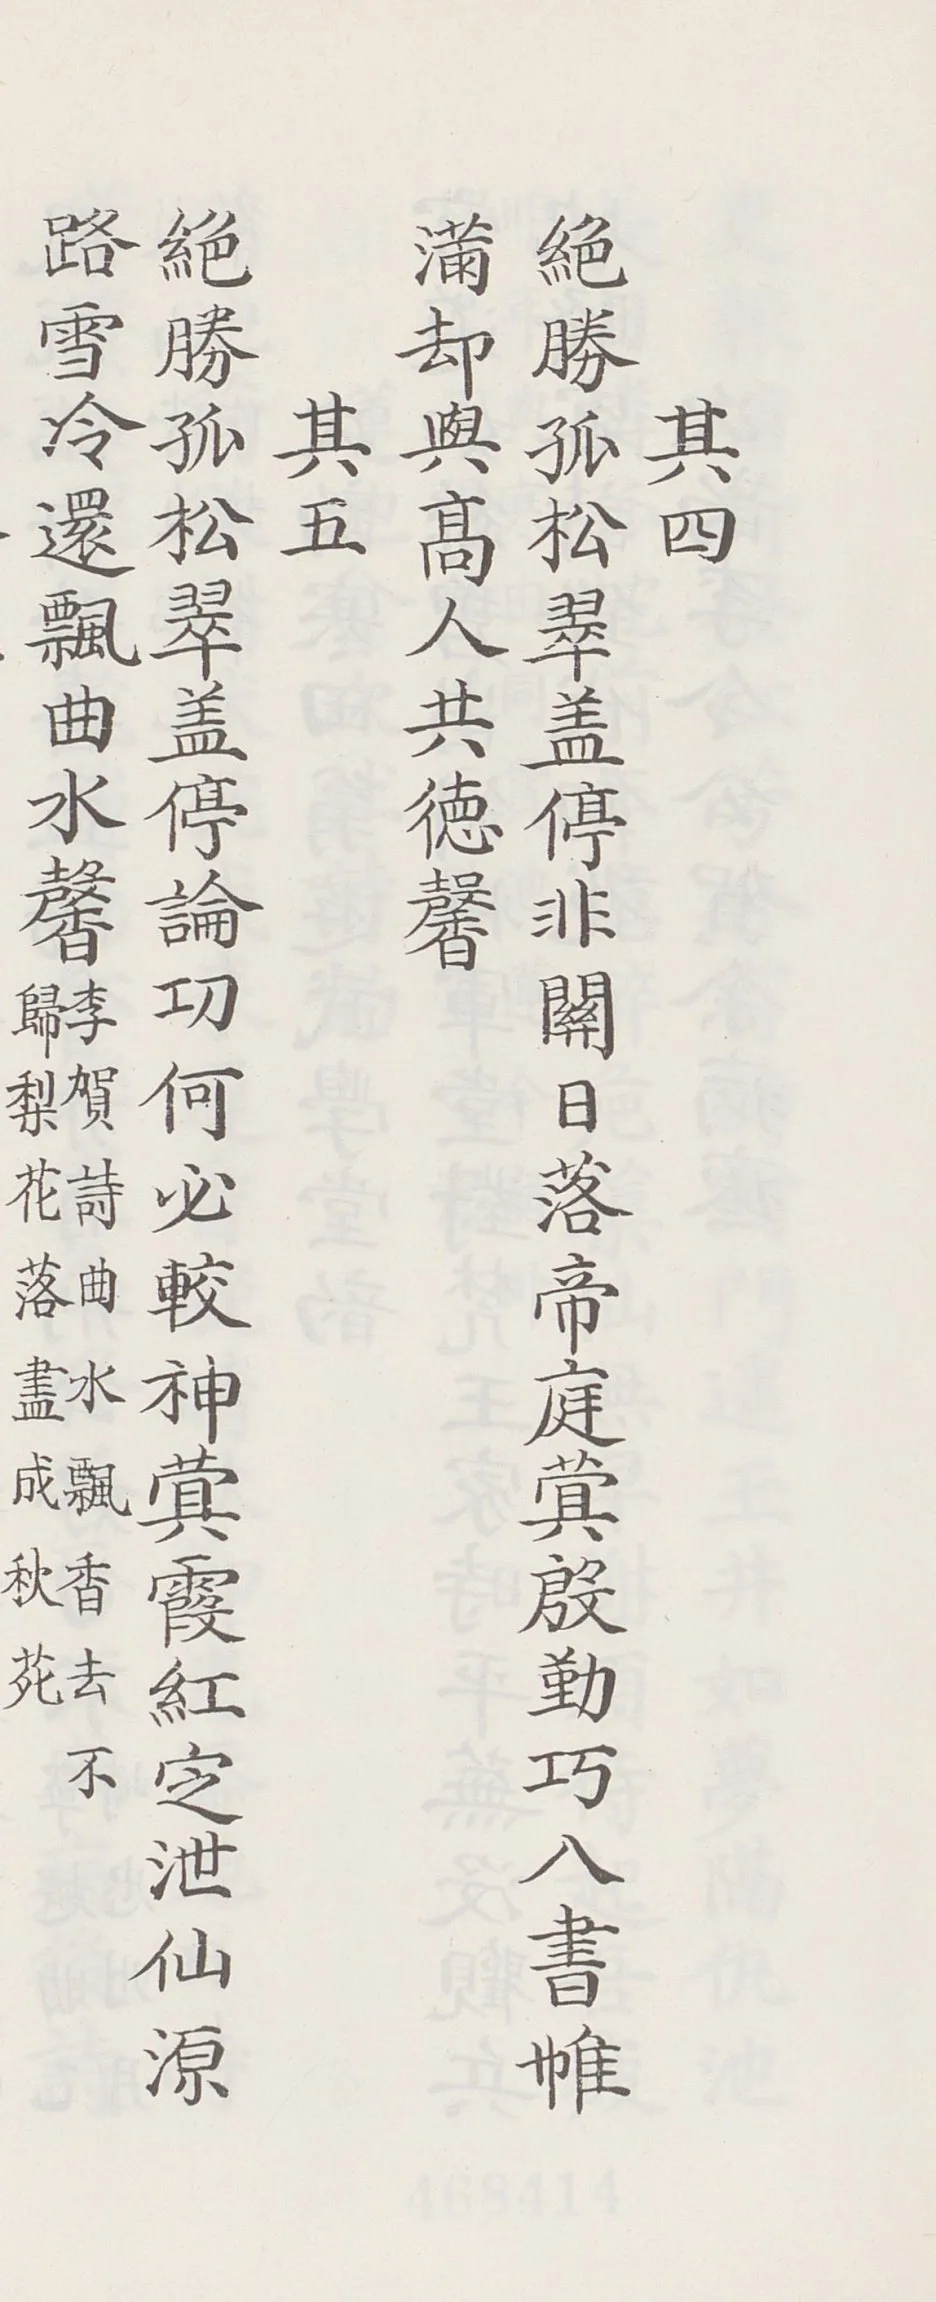 其四
絶勝孤松翠盖停非關日落帝庭蓂殷勤巧入書帷
滿却與髙人共德馨
其五
絶勝孤松翠盖停論功何必較神蓂霞紅定泄仙源
路雪冷還飄曲水馨李賀詩曲水飄香去不
歸梨花落盡成秋苑